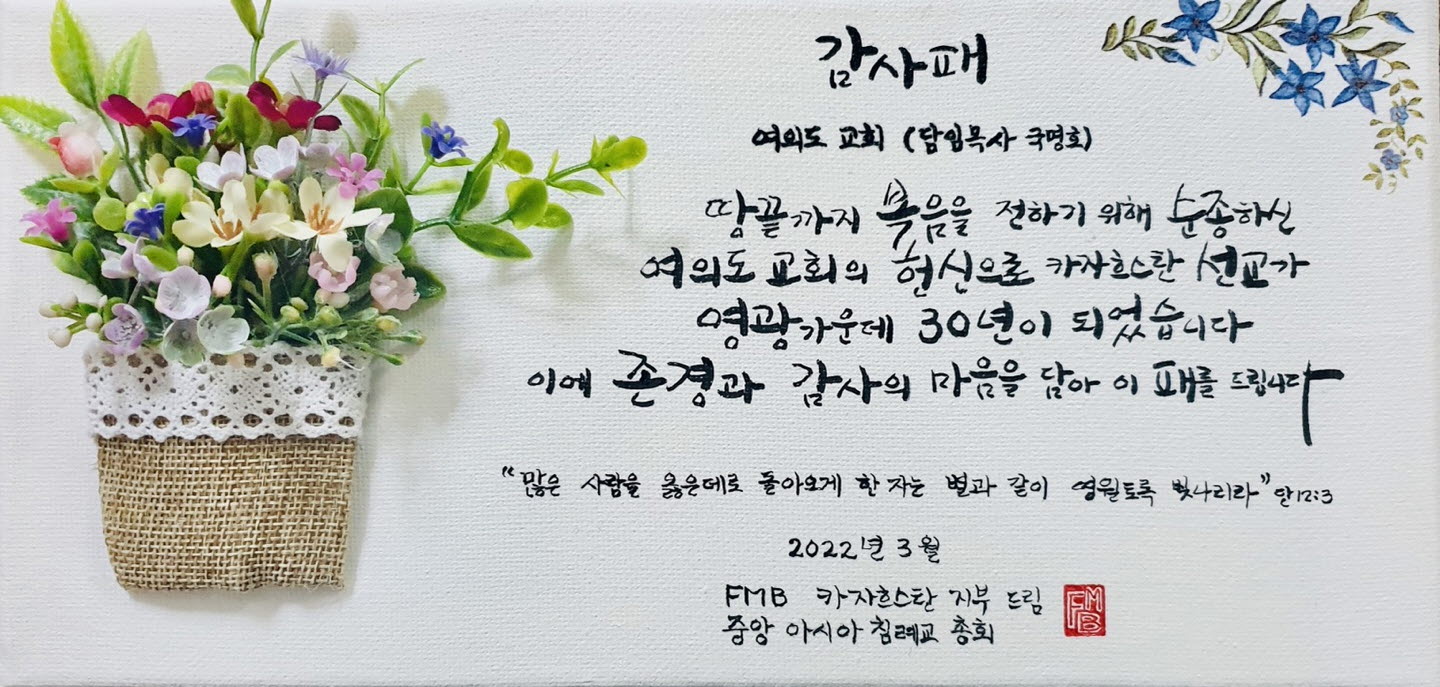 감사패
여의도 교회 (담임목사 국명호)
땅끝까지 복음을 전하기 위해 순종하신
여의도 교회의 헌신으로 카자흐스탄 선교가
영광가운데 30년이 되었습니다
이에 존경과 감사의 마음을 담아 이 패를 드립니다
“많은 사람을 옳은데로 돌아오게 한 자는 별과 같이 영원토록 빛나리라” 단12:3
2022년 3월
FMB 카자흐스탄 지부 드림
중앙 아시아 침례교 총회
FMB